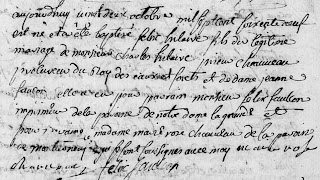 aujourdhuy vingt deux octobre mil sept cent soixante neuf
est né et a été baptisé felix hilaire fils du legitime
mariage de monsieur charles hilaire prieur chauveau
procureur du Roy des et de dame jeanne
faulcon elle a eu pour parrain monsieur felix faulcon
imprimeur de la paroisse de notre dame la grande et
pour marraine madame marie rose chauveau de la
qui se sont soussignés avec moy marie rose
chauveau felix faulcon